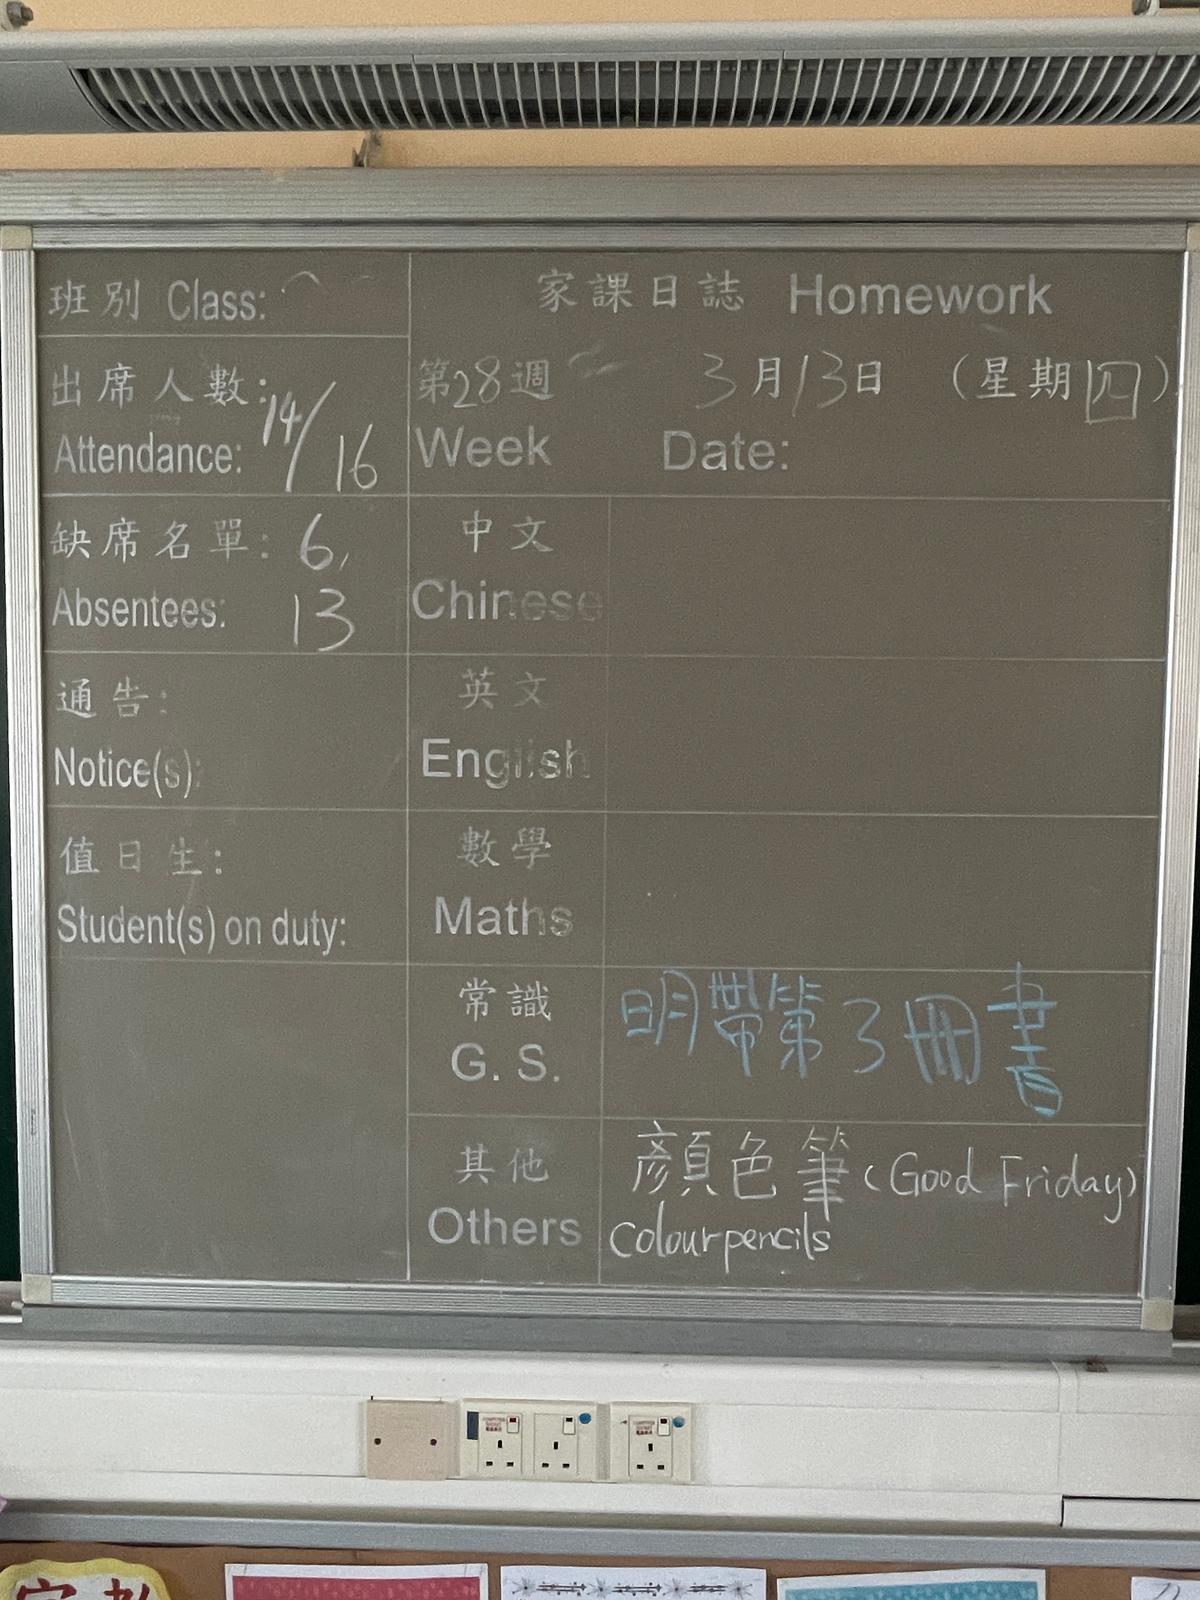 班別 Class:
出席人數:
Attendance: 14/16
缺席名單: 6,
Absentees: 13
通告:
Notice(s):
值日生:
Student(s) on duty:
家課日誌 Homework
第28週 3月13日 (星期四)
Week Date:
中文
Chinese
英文
English
數學
Maths
常識
G. S.
明帶第3冊書
其他
Others
顏色筆 (Good Friday)
Colour pencils